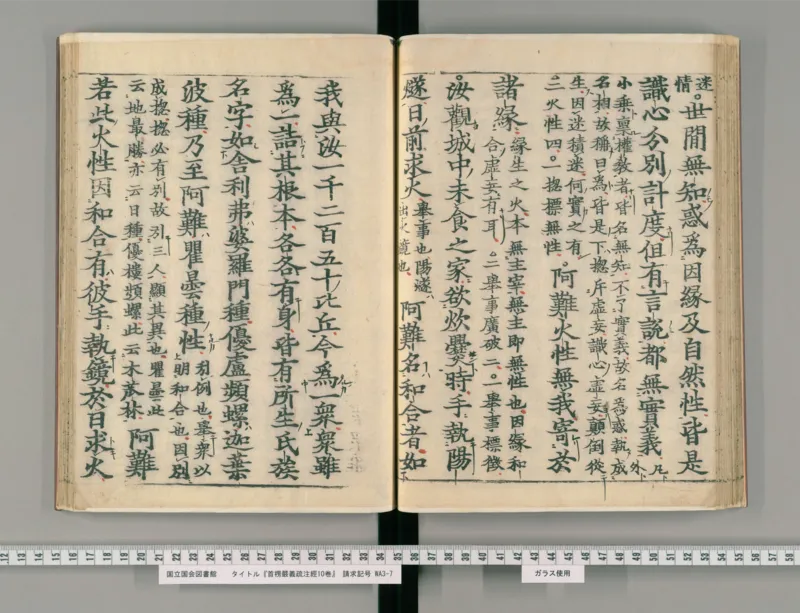 迷
情
世間無知惑為因緣及自然性皆是
識心分別計度但有言說都無實義
凡
外
小乘稟權教者皆名無知不了實義故名為惑執成
名相故稱曰為皆是下揔斥虛妄識心虛妄顛倒從
生因迷積迷何實之有
二火性四。一揔標無性
阿難火性無我寄於
諸緣
緣生之火本無主宰無主即無性也因緣和
合虛妄有耳。二舉事廣破二。一舉事標徵
汝觀城中未食之家欲炊爨時手執陽
燧日前求火
舉事也陽燧
出火鏡也
阿難名和合者如
我與汝一千二百五十比丘今為一衆衆雖
為一詰其根本各各有身皆有所生氏族
名字如舍利弗婆羅門種優盧頻螺迦葉
波種乃至阿難瞿曇種性
引例也舉衆以
明和合也因別
成揔揔必有別故引三人顯其異也瞿曇此
云地最勝亦云日種優樓頻螺此云木苽林
阿難
若此火性因和合有彼手執鏡於日求火
12 13 14 15 16 17 18 19 20 21 22 23 24 25 26 27 28 29 30 31 32 33 34 35 36 37 38 39 40 41 42 43 44 45 46 47 48 49 50 51 52 53 54 55 56 57 58
国立国会図書館 タイトル『首楞嚴義疏注經10巻』 請求記号 WA3-7
ガラス使用